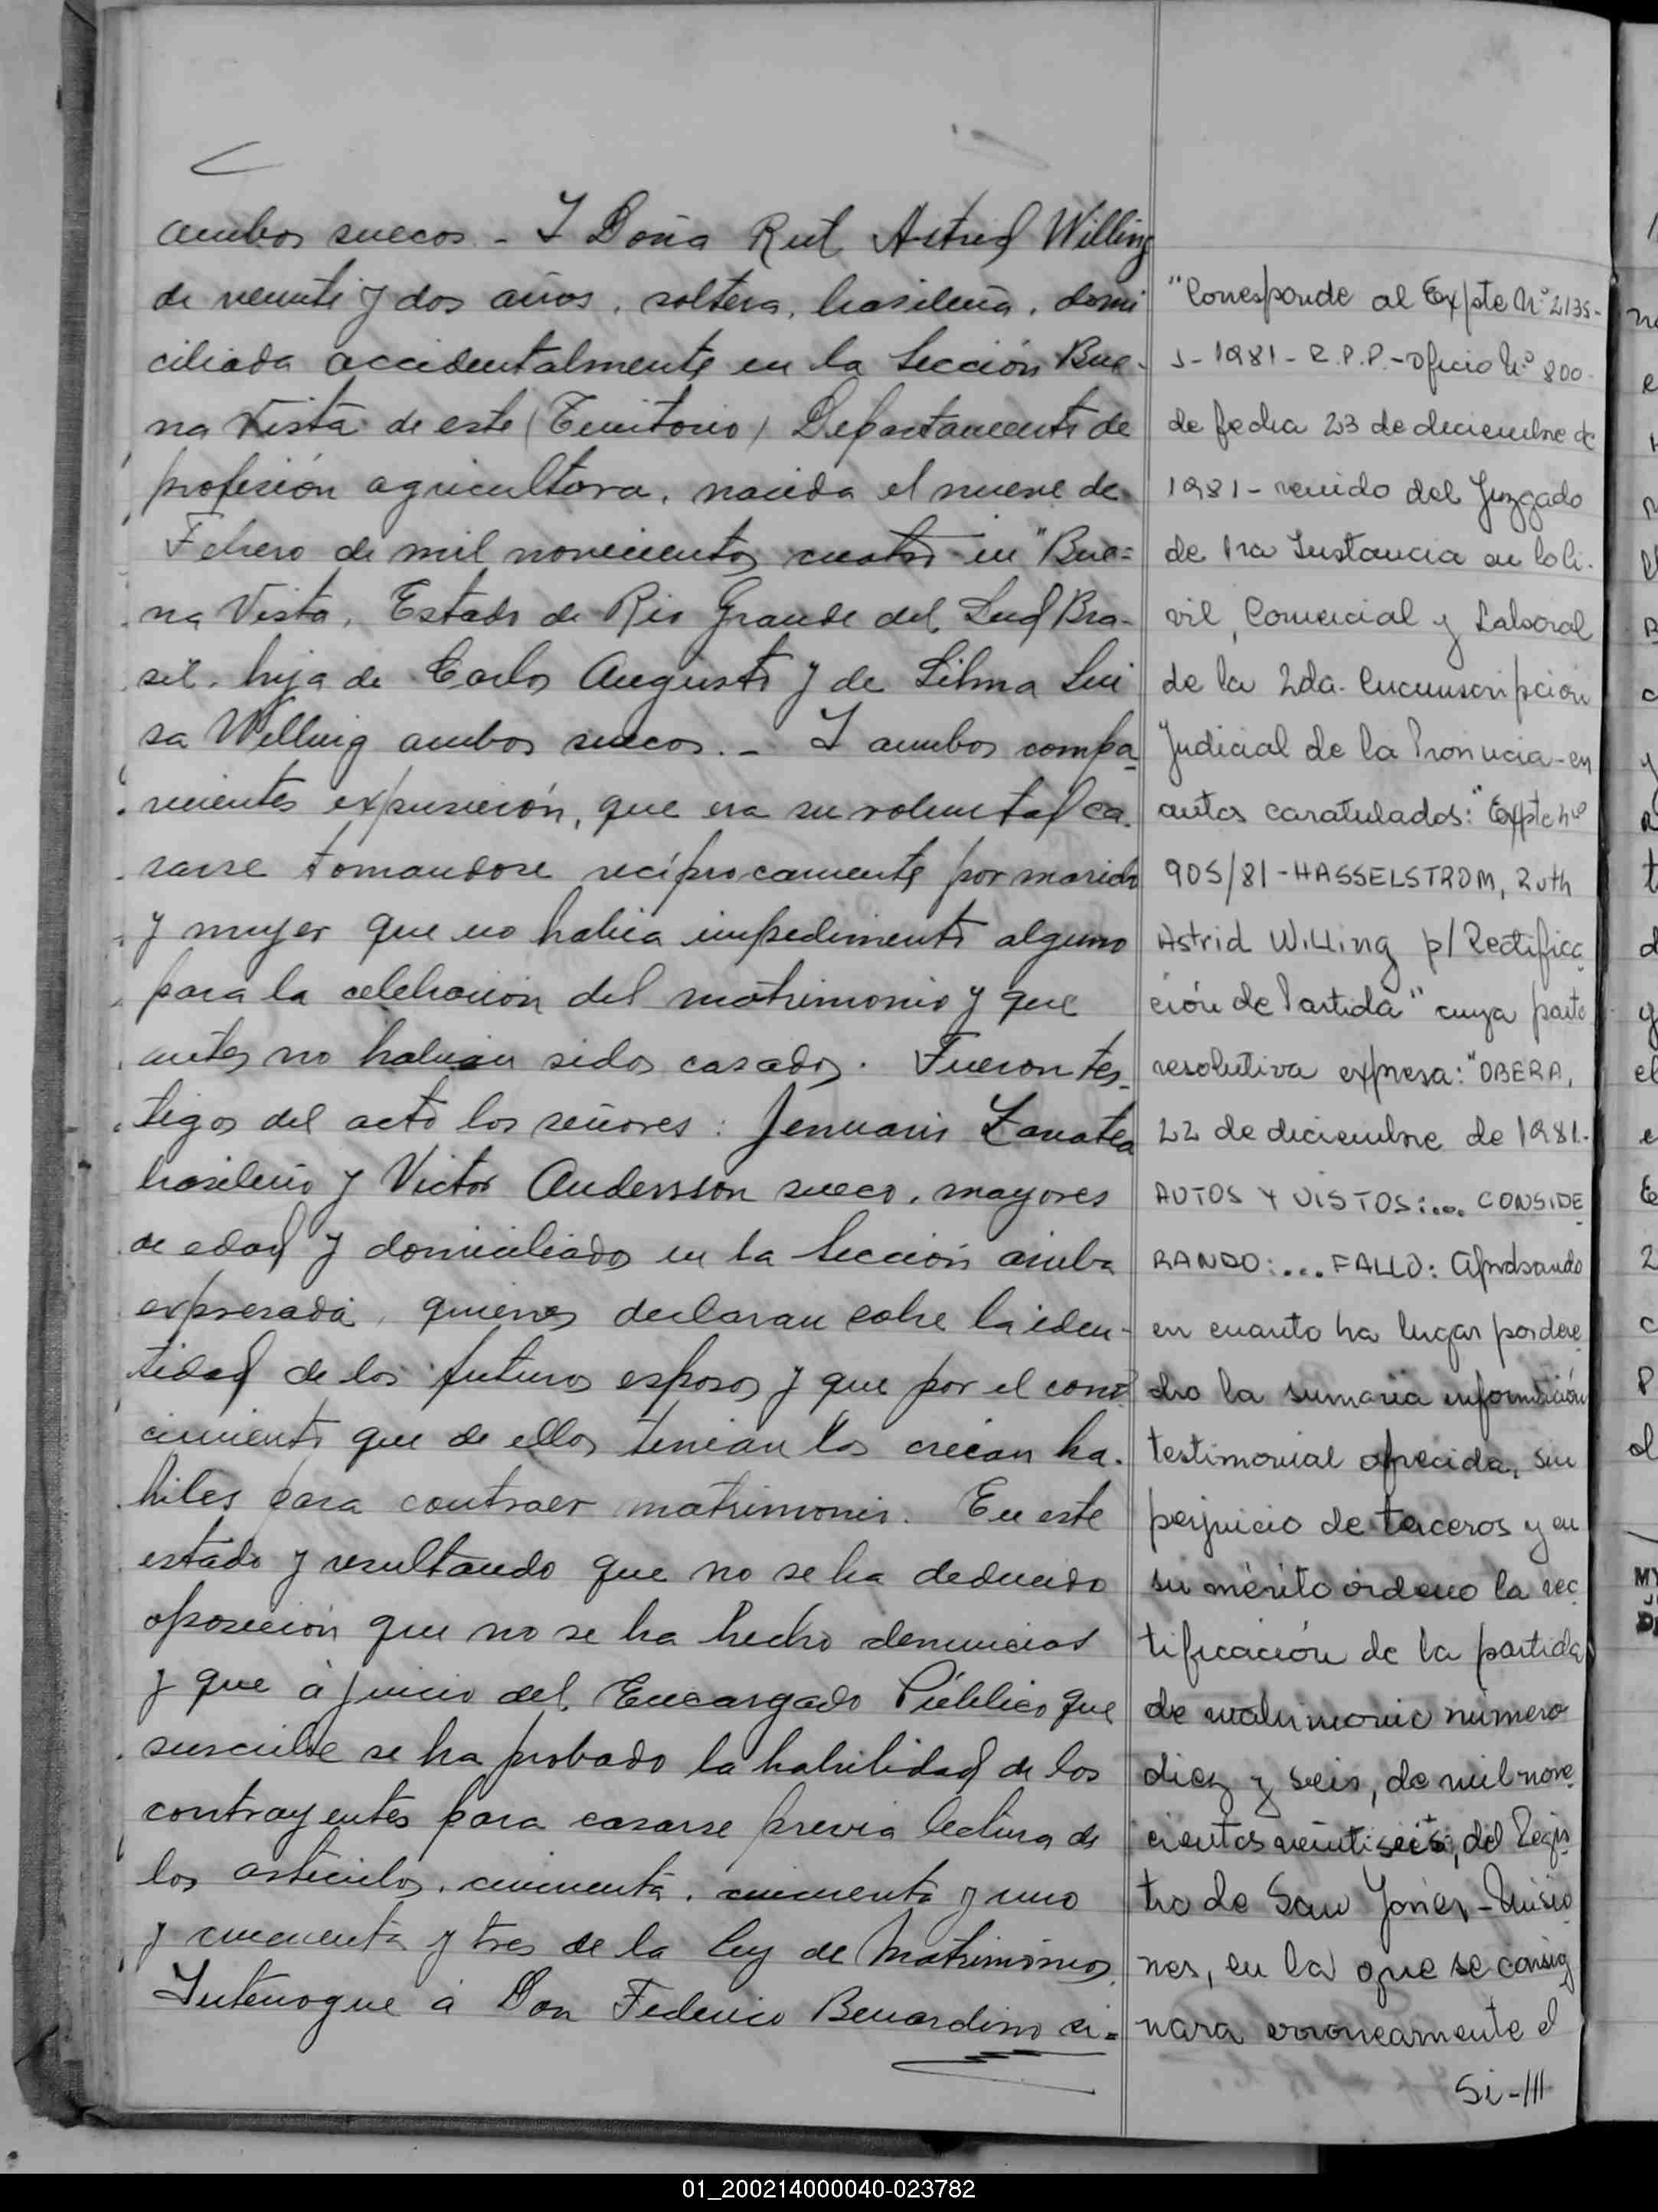 ambos suecos - I Doña Rut Astrid Willing
de veinte y dos años, soltera, brasileña, domi
ciliada accidentalmente en la Sección Bue-
na Vista de este (Territorio) Departamento de
profesión agricultora, nacida el nueve de
Febrero de mil novecientos cuatro en "Bue=
na Vista, Estado de Rio Grande del Sud Bra-
sil, hija de Carlos Augusto y de Silma Lui
sa Willing ambos suecos.- I ambos compa
recientes expusierón, que era su voluntad ca-
sarse tomandose recíprocamente por marido
y mujer que no habia impedimento alguno
para la celebracion del matrimonio y que
antes no habian sidos casados. Fueron tes-
tigos del acto los señores: Jenuario Zanatea
brasileño y Victor Andersson sueco, mayores
de edad y domiciliados en la Sección arriba
expresada, quienes declaran sobre la iden-
tidad de los futuros esposos y que por el cono
cimiento que de ellos tenian los creian ha-
biles para contraer matrimonio. En este
estado y resultando que no se ha deducido
oposicion que no se ha hecho denuncias
y que à juicio del Encargado Público que
suscribe se ha probado la habilidad de los
contrayentes para casarse previa lectura de
los articulos, cincuenta, cincuenta y uno
y cincuenta y tres de la ley de Matrimonios.
Interrogue à Don Federico Bernardino si=
"Corresponde al Expte Nº 2135-
J-1981-R.P.P.-Oficio Nº 800-
de fecha 23 de diciembre de
1981-venido del Juzgado
de 1ra Instancia en lo Ci-
vil, Comercial y Laboral
de la 2da. Circunscripción
Judicial de la Provincia-en
autos caratulados: "Expte nº
905/81-HASSELSTROM, Ruth
Astrid Willing p/Rectifica
ción de Partida" cuya parte
resolutiva expresa: "OBERA,
22 de diciembre de 1981.-
AUTOS Y VISTOS:.... CONSIDE
RANDO:... FALLO: Aprobando
en cuanto ha lugar por dere
cho la sumaria información
testimonial ofrecida, sin
perjuicio de terceros y en
su mérito ordeno la rec
tificación de la partida
de matrimonio número
diez y seis, de mil nove
cientos veintiseis, del Regis
tro de San Javier-Misio
nes, en la que se consig
nara erroneamente el
Si-///
01_200214000040-023782